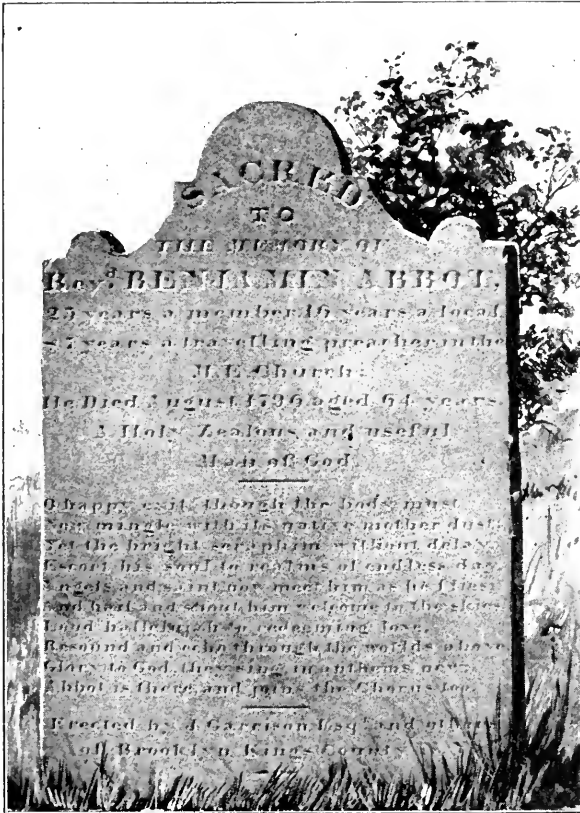 SACRED
TO
THE MEMORY OF
Revd. BENJAMIN ABBOT,
25 years a member 16 years a local
& 7 years a travelling preacher in the
M.E. Church:
He Died August 1796 aged 64 years.
A Holy Zealous and useful
Man of God.
O happy exit, though the body must
Now mingle with its native mother dust,
Yet the bright seraphim without delay
Escort his soul to realms of endless day
Angels and saint now meet him as he flies
And hail and shout him welcome to the skies
Loud hallelujah to redeeming love,
Resound and echo through the worlds above
Glory to God, they sing in anthems new
Abbot is there, and joins the Chorus too.
Erected by J. Garrison Esqr. and others
of Brooklyn Kings County